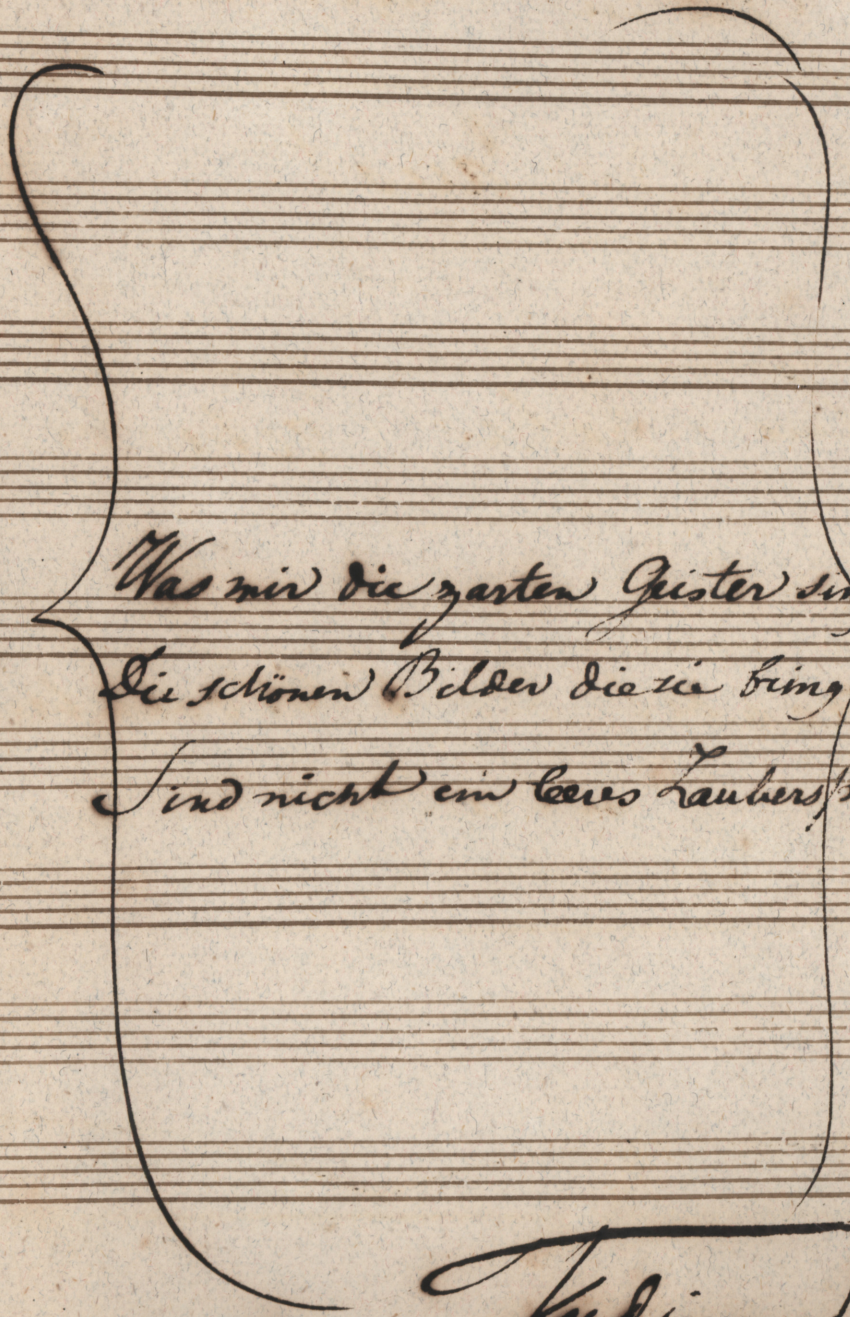 Was mir die zarten Geister sin
Die schönen Bilder die sie bring
Sind nicht ein leeres Zaubersp